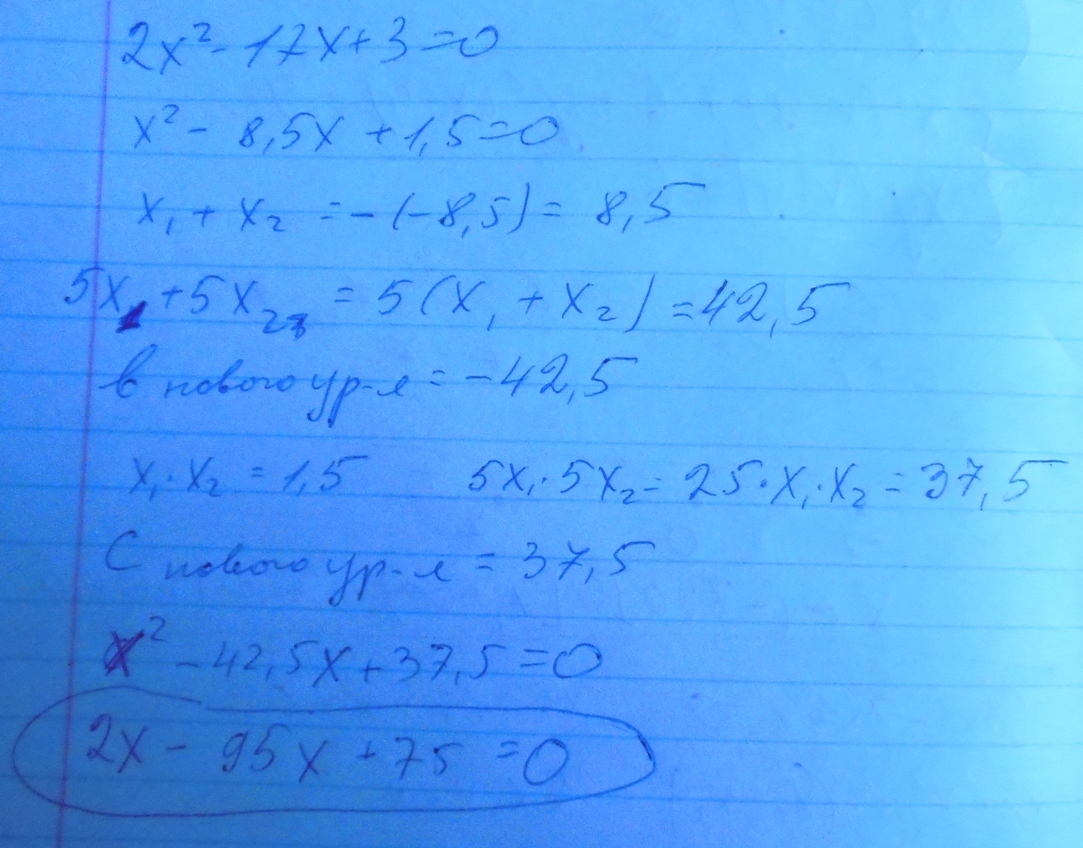 2x² - 17x + 3 = 0
x² - 8,5x + 1,5 = 0
x₁ + x₂ = -(-8,5) = 8,5
5x₁ + 5x₂ = 5(x₁ + x₂) = 42,5
в нового ур-я = -42,5
x₁·x₂ = 1,5 5x₁·5x₂ = 25·x₁·x₂ = 37,5
С нового ур-я = 37,5
x² - 42,5x + 37,5 = 0
2x - 95x + 75 = 0